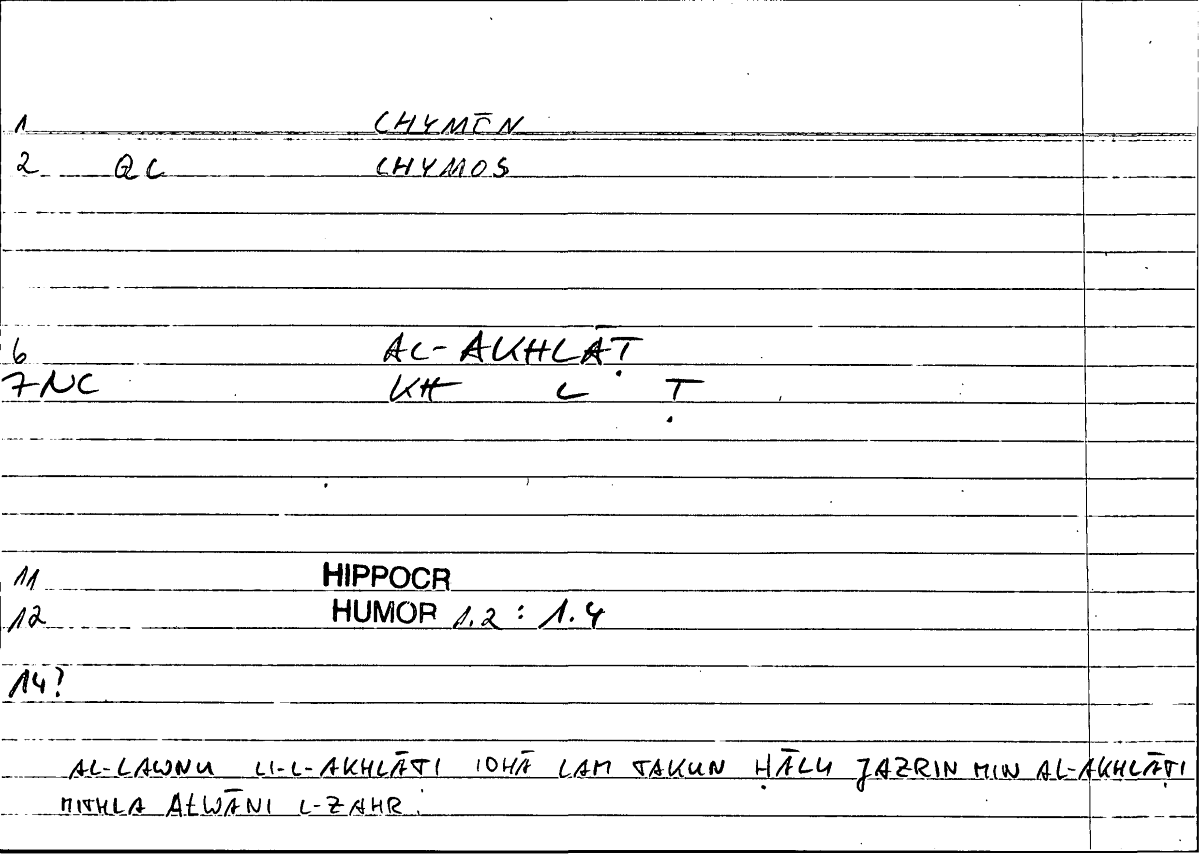 1 CHYMŌN
2 QC CHYMOS
6 AL-AKHLĀṬ
7 NC KH L Ṭ
11 HIPPOCR
12 HUMOR 1.2 : 1.4
14?
AL-LAWNU LI-L-AKHLĀṬI IDHĀ LAM TAKUN ḤĀLU JAZRIN MIN AL-AKHLĀṬI
MITHLA ALWĀNI L-ZAHR.